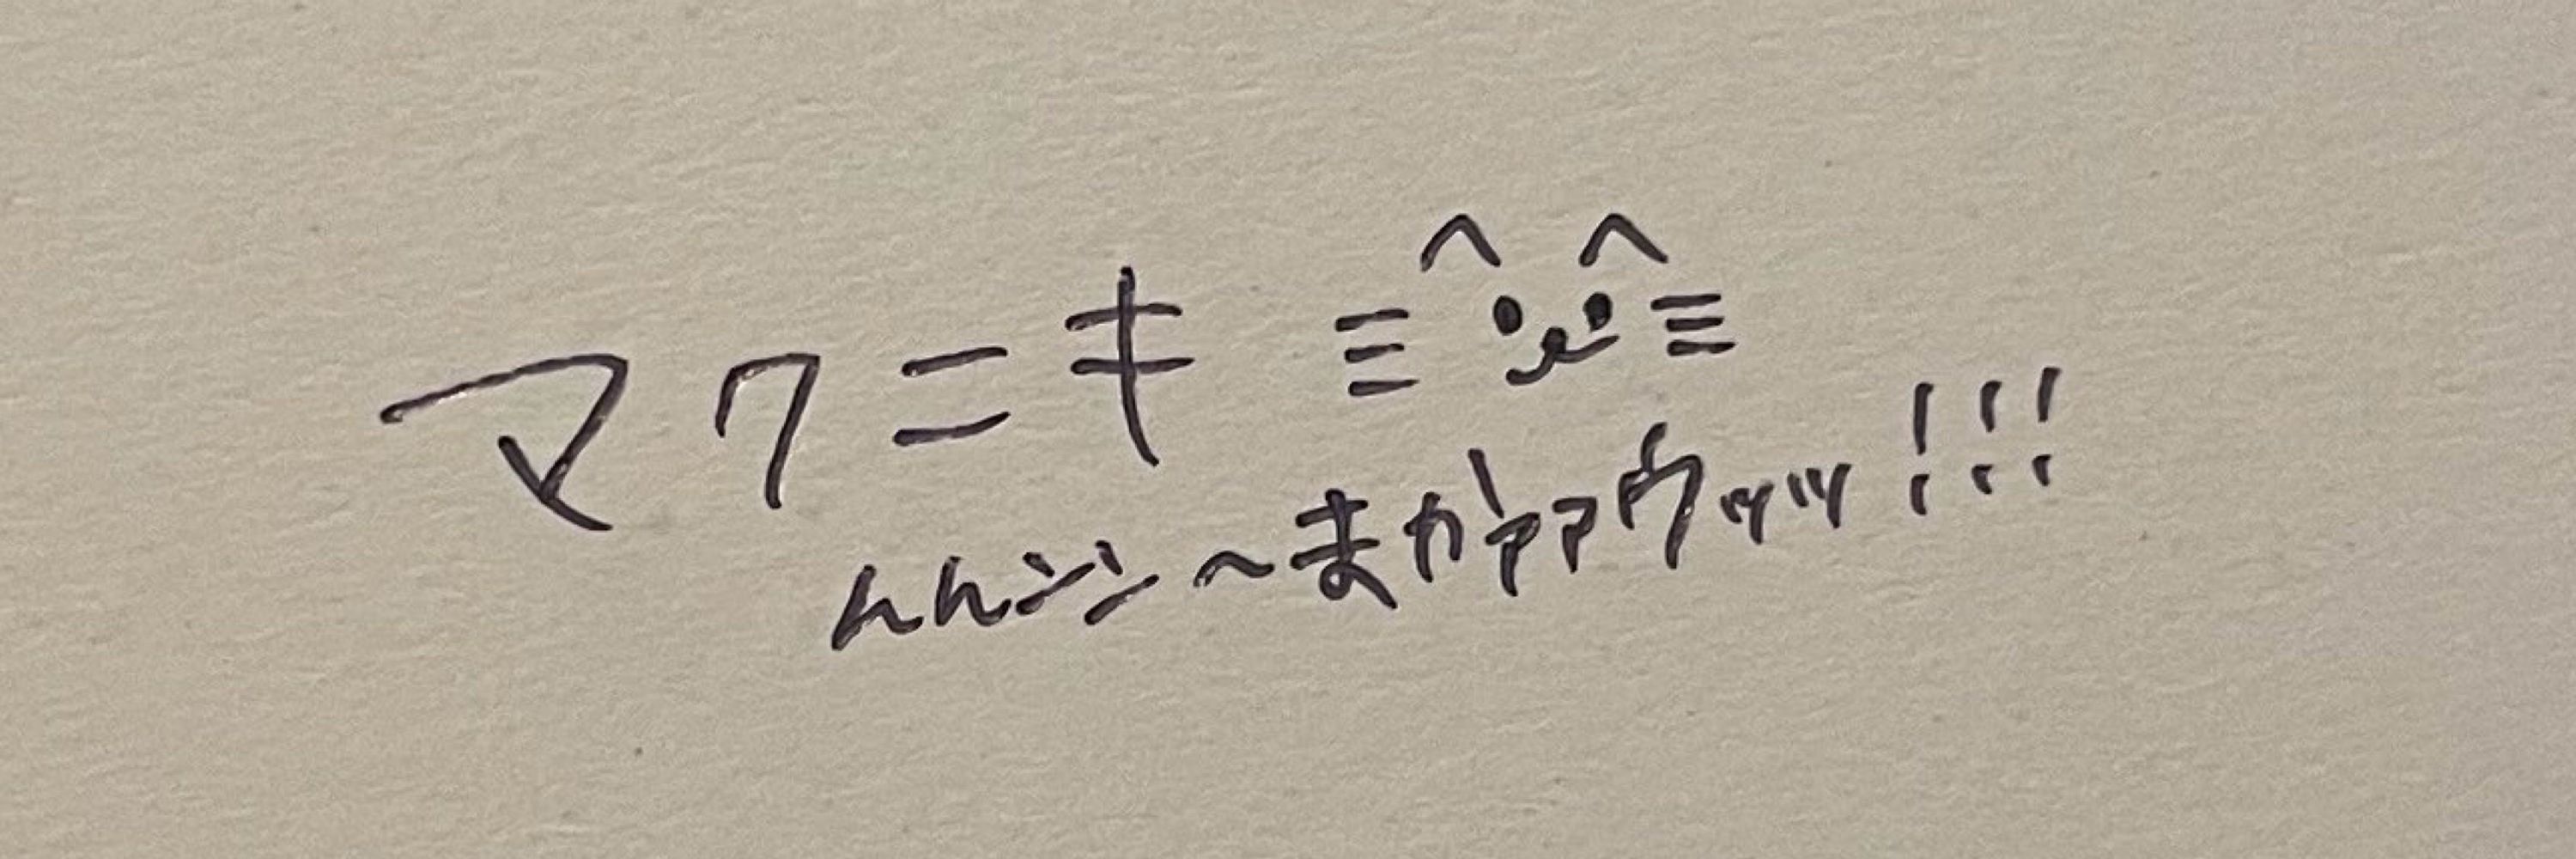 マクニキ ≡^・ﻌ・^≡
んんンン~まかｧァウッッ!!!